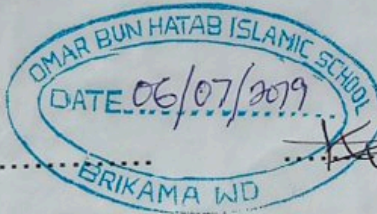 OMAR BUN HATAB ISLAMIC SCHOOL
DATE 06/07/2019
BRIKAMA WD